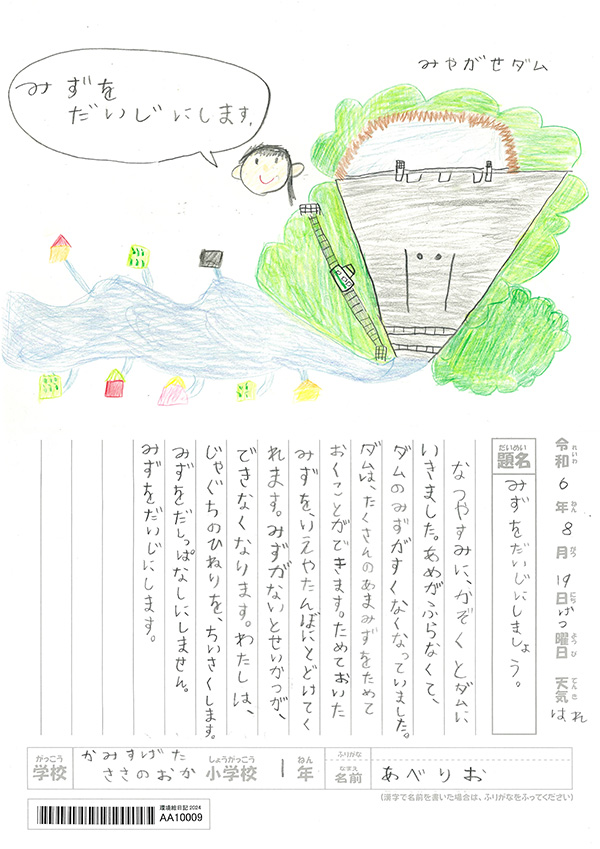 みやがせダム
みずを
だいじにします。
令和6年8月19日げつ曜日 天気 はれ
れいわ ねん がつ にち ようび てんき
だいめい
題名 みずをだいじにしましょう。
なつやすみに、かぞくとダムに
いきました。あめがふらなくて、
ダムのみずがすくなくなっていました。
ダムは、たくさんのあまみずをためて
おくことができます。ためておいた
みずを、いえやたんぼにとどけてく
れます。みずがないとせいかつが、
できなくなります。わたしは、
じゃぐちのひねりを、ちいさくします。
みずをだしっぱなしにしません。
みずをだいじにします。
がっこう しょうがっこう ねん ふりがな
学校 かみすげた
ささのおか 小学校 1年
なまえ
名前 あべりお
(漢字で名前を書いた場合は、ふりがなをふってください)
環境絵日記 2024
AA10009